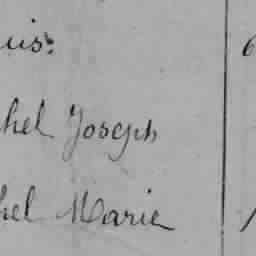 uis: 6
hel Joseph
hel Marie 1